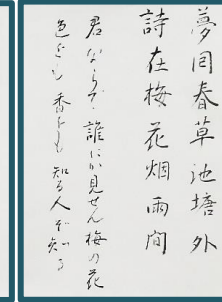 夢回春草池塘外
詩在梅花烟雨間
君ならで誰にか見せん梅の花
色をも香をも知る人ぞ知る